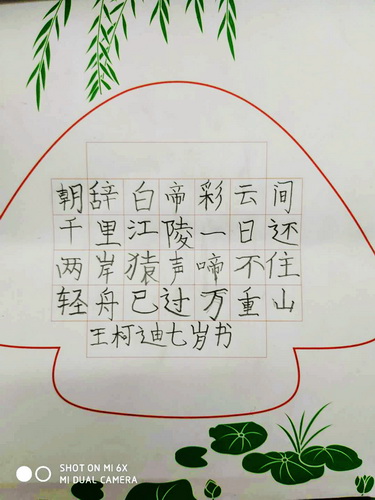 朝辞白帝彩云间
千里江陵一日还
两岸猿声啼不住
轻舟已过万重山
王柯迪七岁书
SHOT ON MI 6X
MI DUAL CAMERA